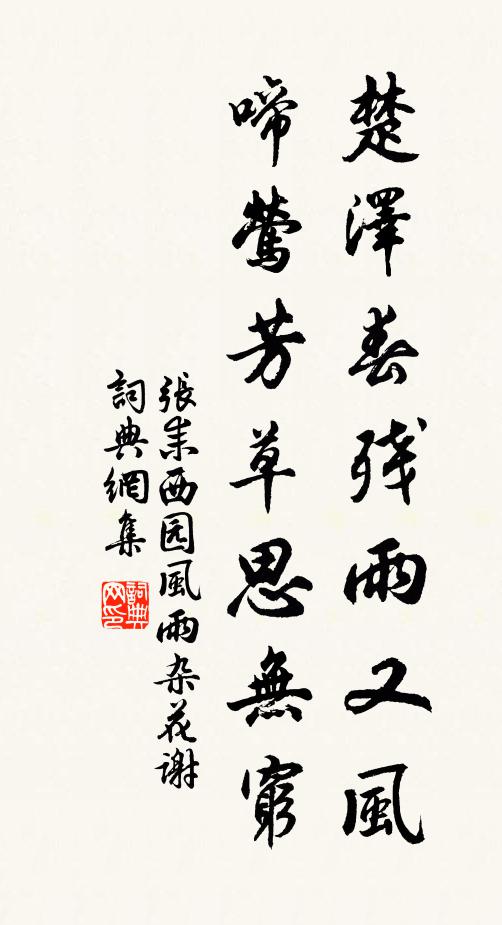 楚澤春残雨又風
啼鶯芳草思無窮
張耒西园風雨杂花謝
詞典網集
詞典网印